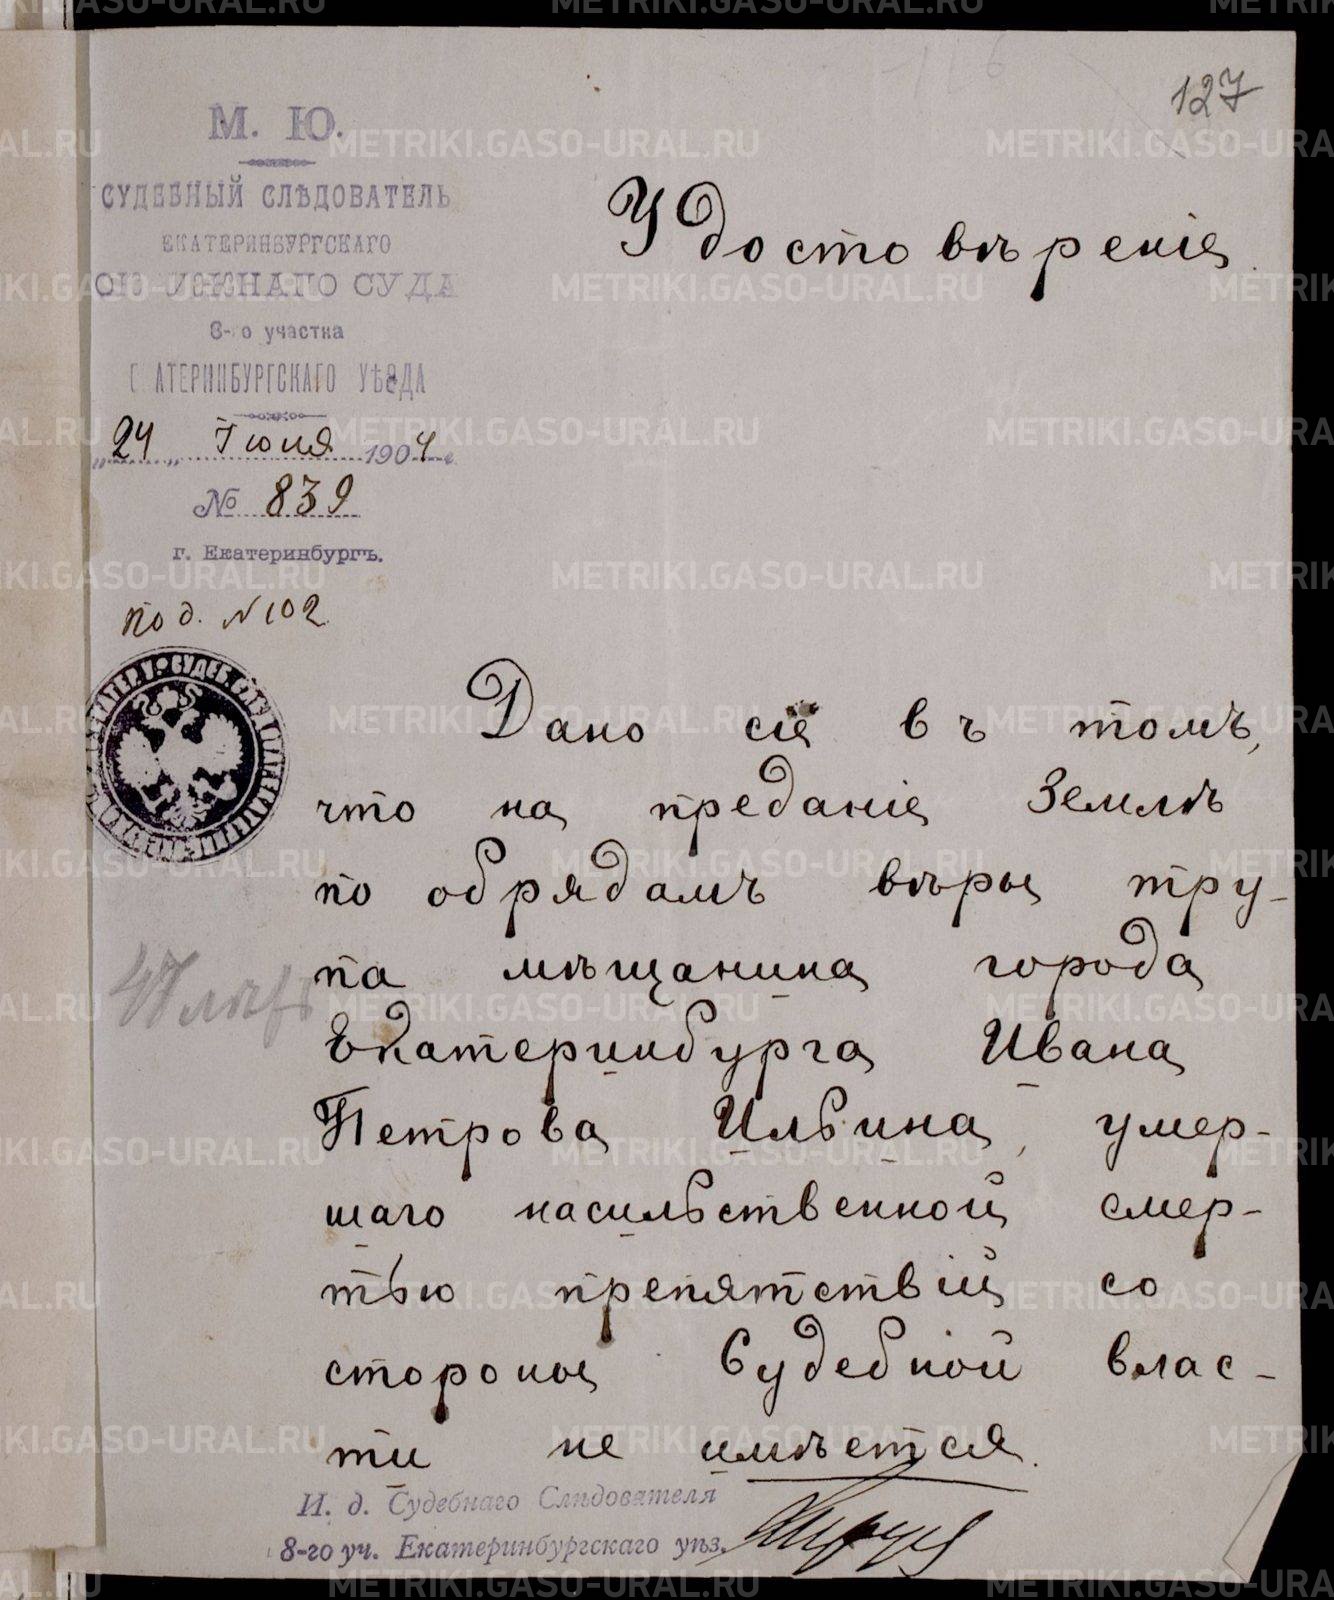 127
М. Ю.
СУДЕБНЫЙ СЛѢДОВАТЕЛЬ
ЕКАТЕРИНБУРГСКАГО
ОКРУЖНАГО СУДА
8-го участка
ЕКАТЕРИНБУРГСКАГО УѢЗДА
„24„ Іюля 1904 г.
№ 839
г. Екатеринбургъ.
под. № 102
Удостовѣреніе.
Дано сіе въ томъ,
что на преданіе Землѣ
по обрядамъ вѣры тру-
па мѣщанина города
Екатеринбурга Ивана
Петрова Ильина, умер-
шаго насильственной смер-
тью препятствій со
стороны Судебной влас-
ти не имѣется.
И. д. Судебнаго Слѣдователя
8-го уч. Екатеринбургскаго уѣз.
METRIKI.GASO-URAL.RU